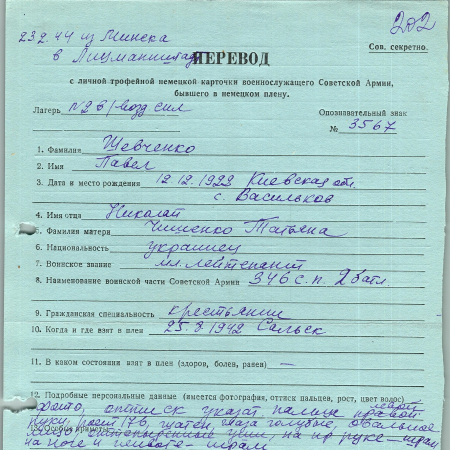 202
23.2.44 из Минска
в Лицманштадт
ПЕРЕВОД
Сов. секретно.
с личной трофейной немецкой карточки военнослужащего Советской Армии,
бывшего в немецком плену.
Лагерь №2 б/возд сил
Опознавательный знак
№ 3567
1. Фамилия Шевченко
2. Имя Павел
3. Дата и место рождения 12.12.1922 Киевская обл.
с. Васильков
4. Имя отца Николай
5. Фамилия матери Тищенко Татьяна
6. Национальность украинец
7. Воинское звание мл. лейтенант
8. Наименование воинской части Советской Армии 346 с.п. 2 батл.
9. Гражданская специальность крестьянин
10. Когда и где взят в плен 25.8.1942 Сальск
11. В каком состоянии взят в плен (здоров, болен, ранен) —
12. Подробные персональные данные (имеется фотография, оттиск пальцев, рост, цвет волос)
фото, оттиск указат. пальца правой
руки, рост 176, шатен, глаза голубые, овальное
13. Особые приметы
лицо уши, на пр руке — шрам
на ноге и животе — шрам